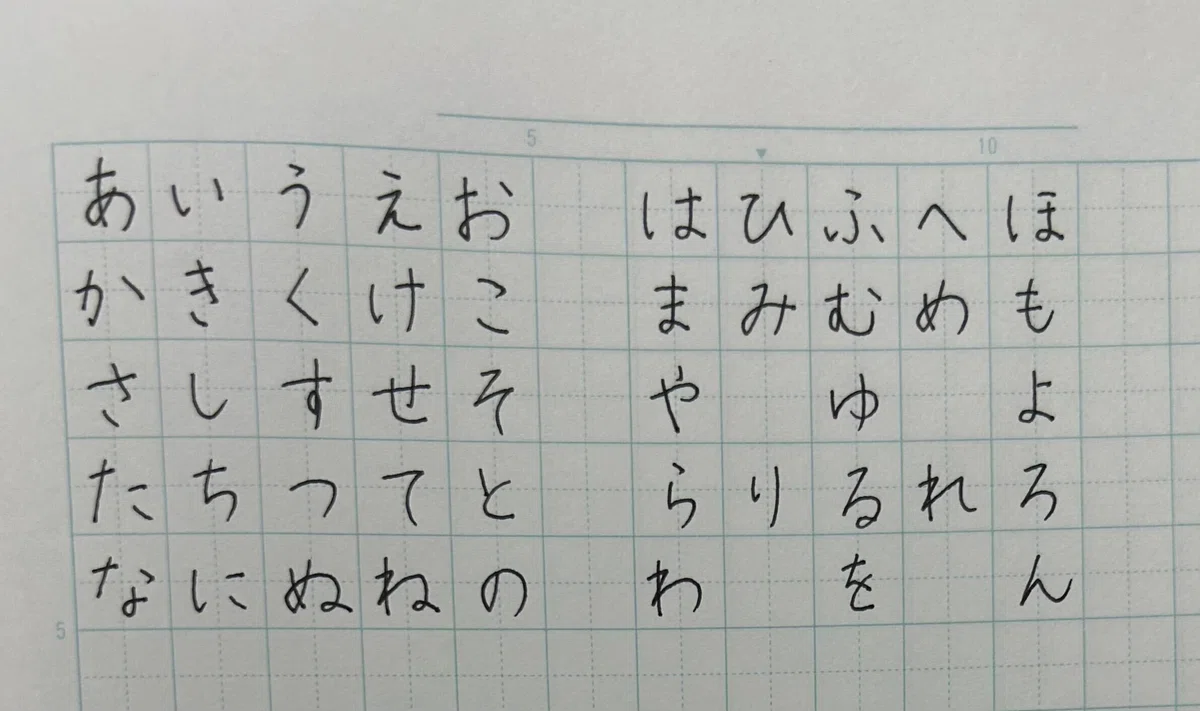 5 10
あいうえお はひふへほ
かきくけこ まみむめも
さしすせそ や ゆ よ
たちつてと らりるれろ
なにぬねの わ を ん
5